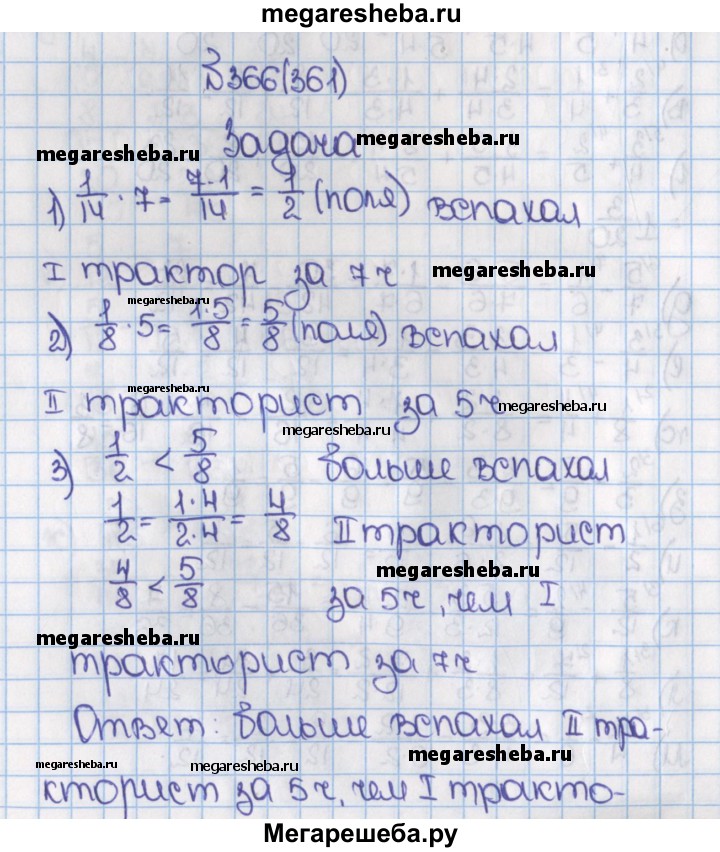 megaresheba.ru
№366(361)
Задача megaresheba.ru
megaresheba.ru
1) 1/14 · 7 = 7·1/14 = 1/2 (поля) вспахал
I трактор за 7 ч megaresheba.ru
megaresheba.ru
2) 1/8 · 5 = 1·5/8 = 5/8 (поля) вспахал
megaresheba.ru
II тракторист за 5 ч megaresheba.ru
megaresheba.ru
3) 1/2 < 5/8 больше вспахал
1/2 = 1·4/2·4 = 4/8 II тракторист
megaresheba.ru
4/8 < 5/8 за 5 ч, чем I
megaresheba.ru
тракторист за 7 ч
megaresheba.ru
Ответ: больше вспахал II тра-
megaresheba.ru megaresheba.ru megaresheba.ru
кторист за 5 ч, чем I тракто-
Мегарешеба.ру